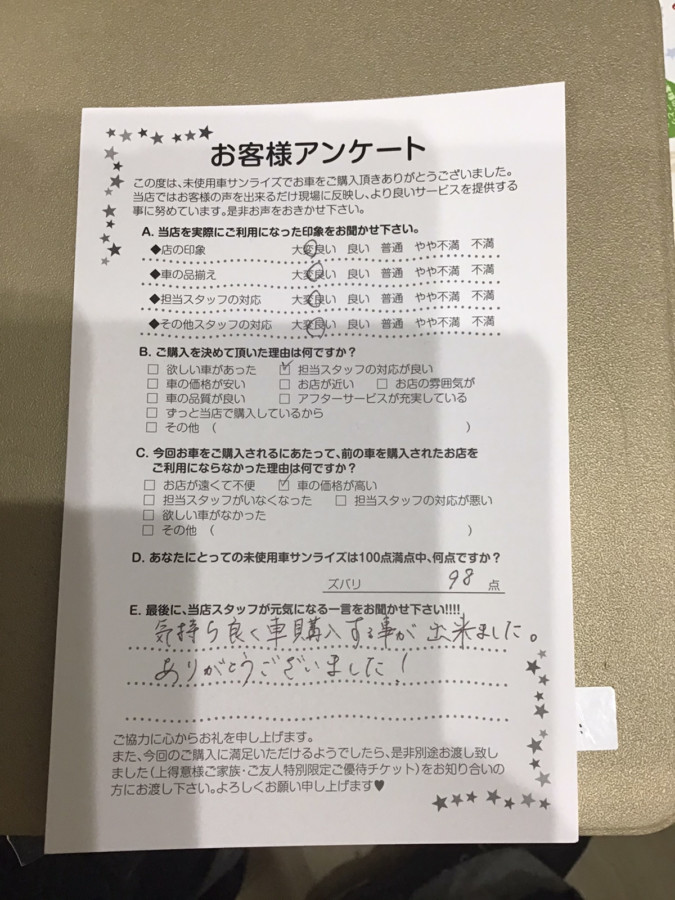 お客様アンケート
この度は、未使用車サンライズでお車をご購入頂きありがとうございました。
当店ではお客様の声を出来るだけ現場に反映し、より良いサービスを提供する
事に努めています。是非お声をおきかせ下さい。
A. 当店を実際にご利用になった印象をお聞かせ下さい。
◆店の印象 大変良い 良い 普通 やや不満 不満
◆車の品揃え 大変良い 良い 普通 やや不満 不満
◆担当スタッフの対応 大変良い 良い 普通 やや不満 不満
◆その他スタッフの対応 大変良い 良い 普通 やや不満 不満
B. ご購入を決めて頂いた理由は何ですか?
□ 欲しい車があった ☑ 担当スタッフの対応が良い
□ 車の価格が安い □ お店が近い □ お店の雰囲気が
□ 車の品質が良い □ アフターサービスが充実している
□ ずっと当店で購入しているから
□ その他 ( )
C. 今回お車をご購入されるにあたって、前の車を購入されたお店を
ご利用にならなかった理由は何ですか?
□ お店が遠くて不便 ☑ 車の価格が高い
□ 担当スタッフがいなくなった □ 担当スタッフの対応が悪い
□ 欲しい車がなかった
□ その他 ( )
D. あなたにとっての未使用車サンライズは100点満点中、何点ですか?
ズバリ 98 点
E. 最後に、当店スタッフが元気になる一言をお聞かせ下さい!!!!
気持ち良く車購入する事が出来ました。
ありがとうございました!
ご協力に心からお礼を申し上げます。
また、今回のご購入に満足いただけるようでしたら、是非別途お渡し致し
ました(上得意様ご家族・ご友人特別限定ご優待チケット)をお知り合いの
方にお渡し下さい。よろしくお願い申し上げます♥